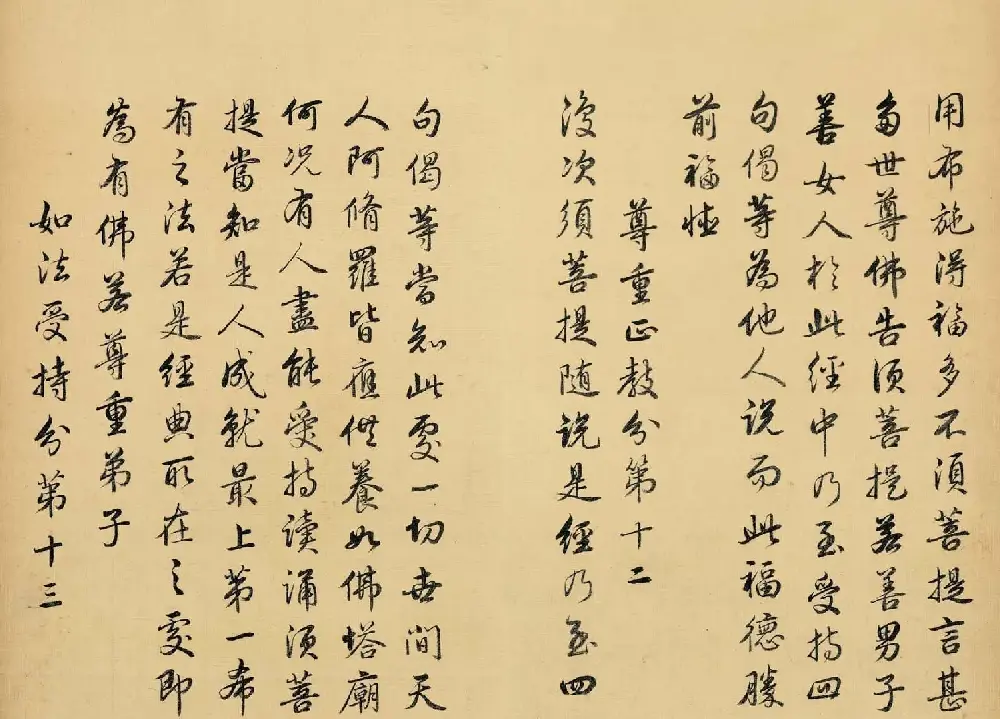 用布施得福多不須菩提言甚
多世尊佛告須菩提若善男子
善女人於此經中乃至受持四
句偈等為他人說而此福德勝
前福德
尊重正教分第十二
復次須菩提隨說是經乃至四
句偈等當知此處一切世間天
人阿脩羅皆應供養如佛塔廟
何況有人盡能受持讀誦須菩
提當知是人成就最上第一希
有之法若是經典所在之處即
為有佛若尊重弟子
如法受持分第十三